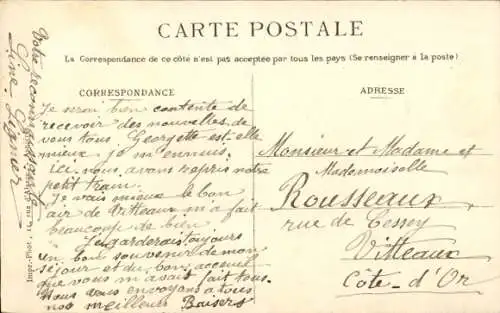 CARTE POSTALE
La Correspondance de ce côté n'est pas acceptée par tous les pays (Se renseigner à la poste)
CORRESPONDANCE
Je serai bien contente de
recevoir des nouvelles de
vous tous Georgette est elle
mieux je m'ennuis
ici nous avons repris notre
petit train
Je vais mieux le bon
air de Vitteaux m'a fait
beaucoup de bien
Je garderai toujours
un bon souvenir de mon
séjour et du bon accueil
que vous m'avais fait tous
Nous vous envoyons a tous
nos meilleurs Baisers
Votre
Line
Impr.-Phot.
ADRESSE
Monsieur et Madame et
Mademoiselle
Rousseaux
rue de Cessey
Vitteaux
Côte-d'Or